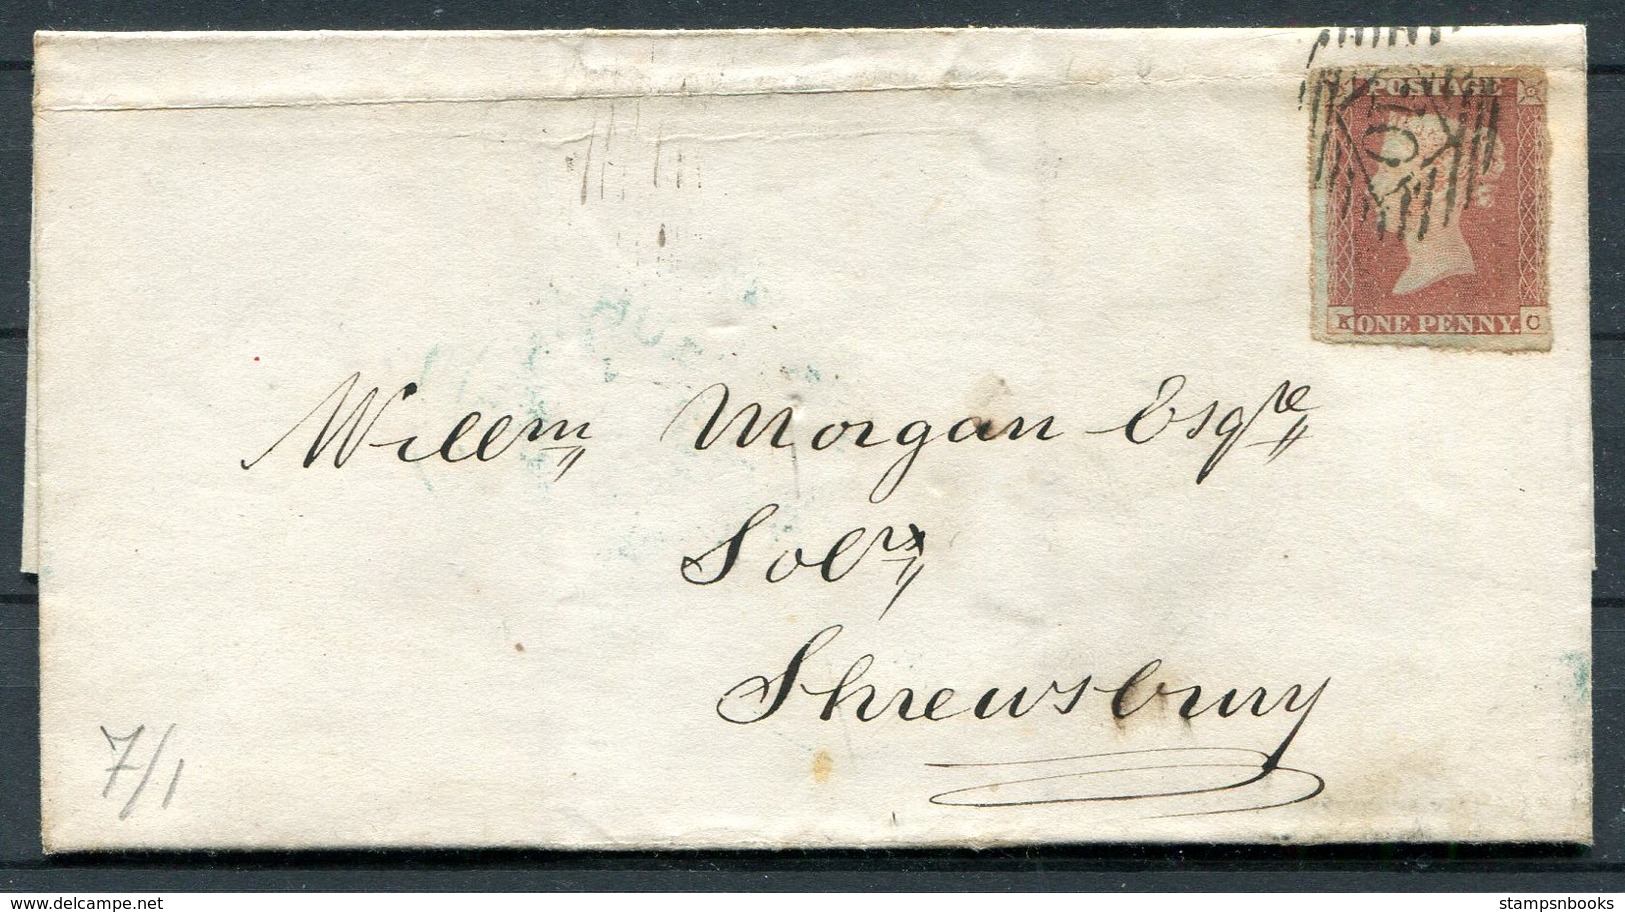 POSTAGE
K ONE PENNY. C
Willm Morgan Esqre
Solr
Shrewsbury
7/1
www.delcampe.net
stampsnbooks